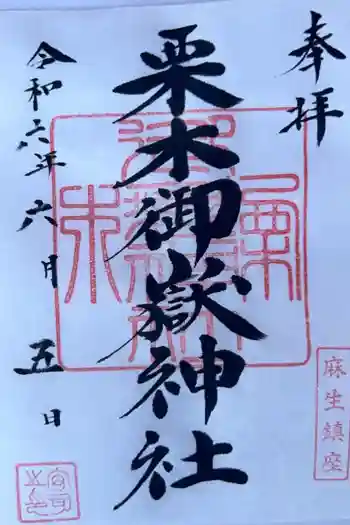 奉拝
栗木御嶽神社
令和六年六月五日
麻生鎮座